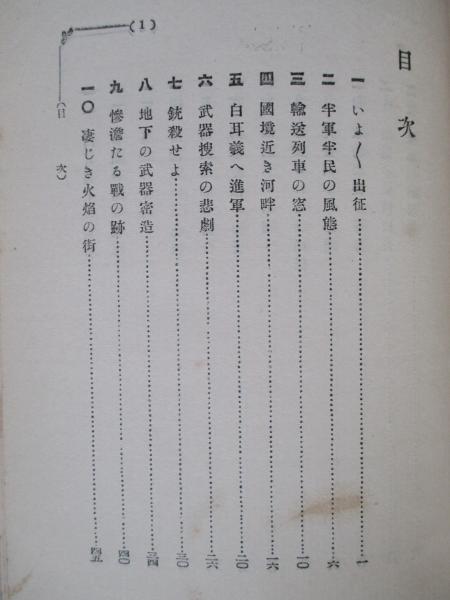 目次
一 いよ〱出征……一
二 半軍半民の風態……六
三 輸送列車の窓……一〇
四 國境近き河畔……一六
五 白耳義へ進軍……二〇
六 武器搜索の悲劇……二六
七 銃殺せよ……三〇
八 地下の武器密造……三四
九 慘澹たる戰の跡……四〇
一〇 凄じき火焰の街……四五
(目次)
(1)